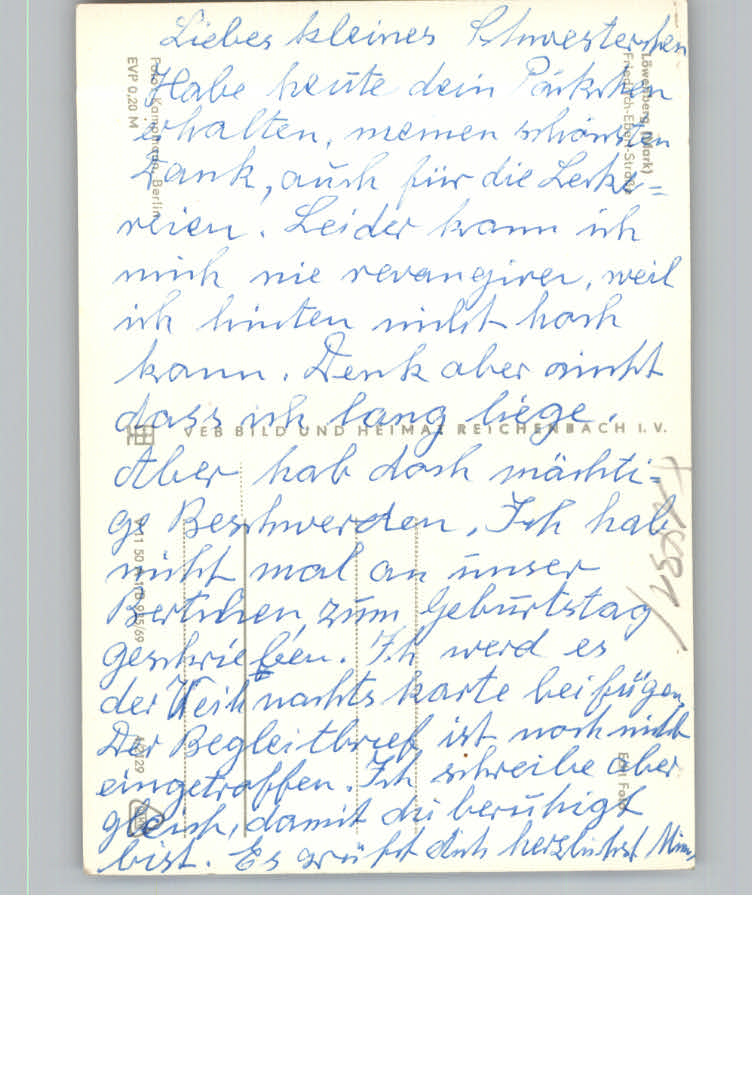 Liebes kleines Schwesterchen
Habe heute dein Päckchen
erhalten, meinen schönsten
Dank, auch für die Lecke=
reien. Leider kann ich
mich nie revangieren, weil
ich hinten nicht hoch
kann. Denk aber nicht
dass ich lang liege.
Aber hab doch mächti=
ge Beschwerden. Ich hab
nicht mal an unser
Bertchen zum Geburtstag
geschrieben. Ich werd es
der Weihnachtskarte beifügen.
Der Begleitbrief ist noch nicht
eingetroffen. Ich schreibe aber
gleich, damit du beruhigt
bist. Es grüßt dich herzlichst
VEB BILD UND HEIMAT REICHENBACH I. V.
Löwenberg (Mark)
Friedrich-Ebert-Straße
Echt Foto
Berlin
EVP 0,20 M